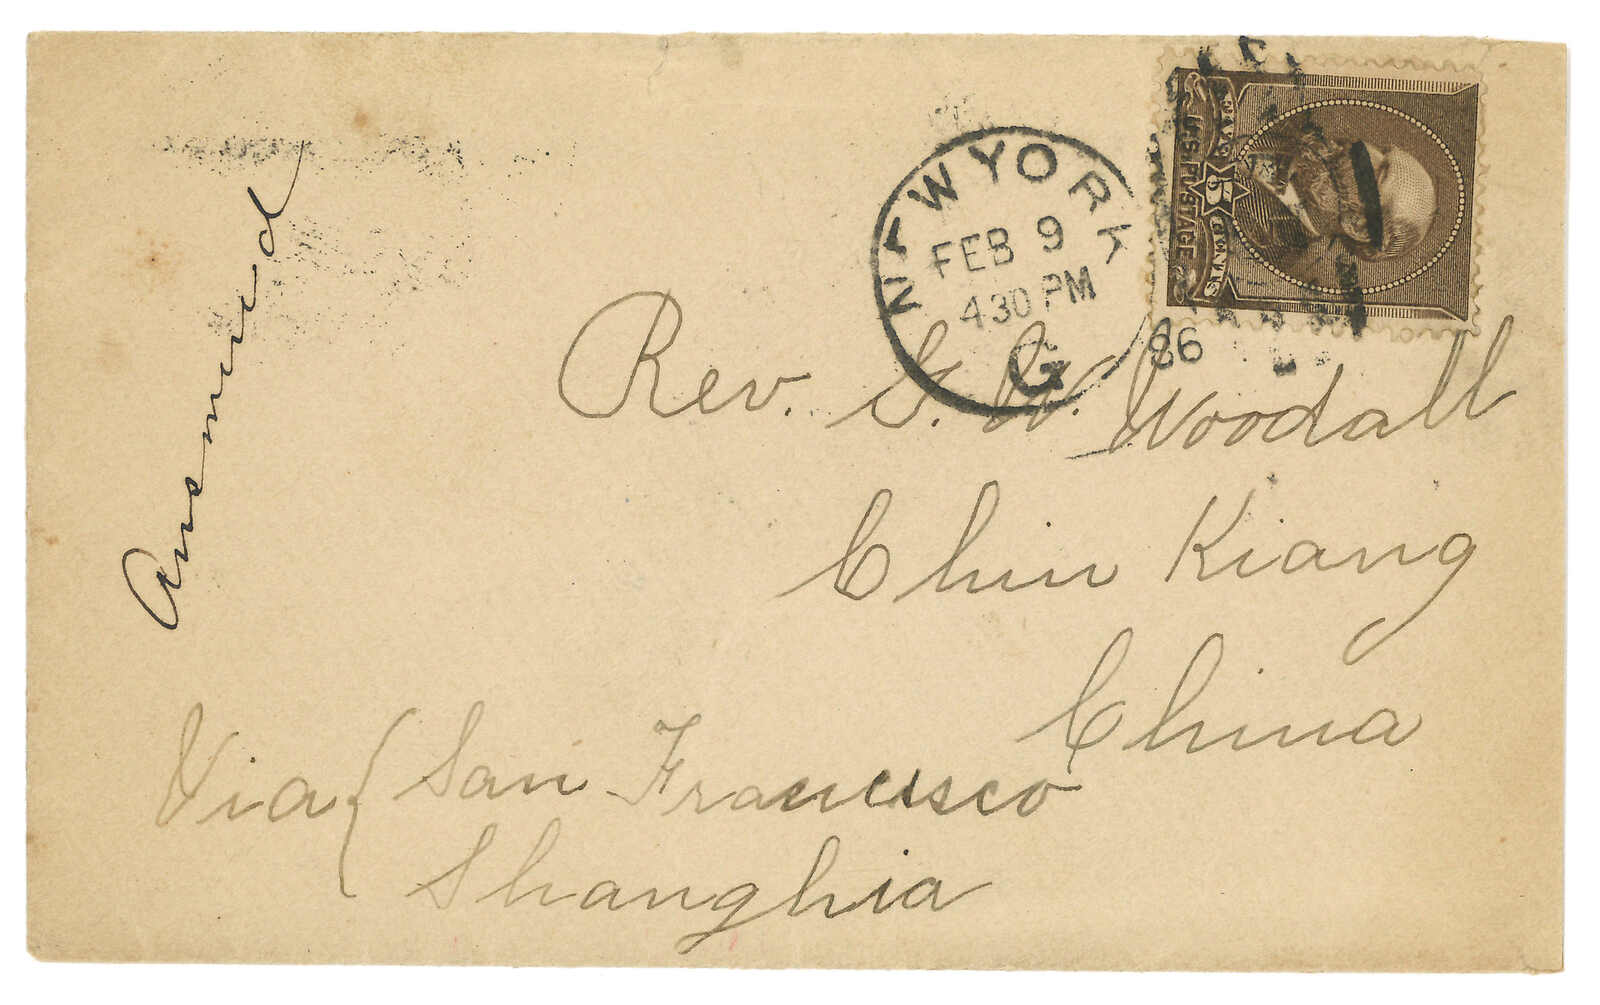 NEW YORK
FEB 9
430 PM
86
G
U.S. POSTAGE
FIVE 5 CENTS
Answered
Rev. G. W. Woodall
Chin Kiang
China
Via { San Francisco
Shanghia